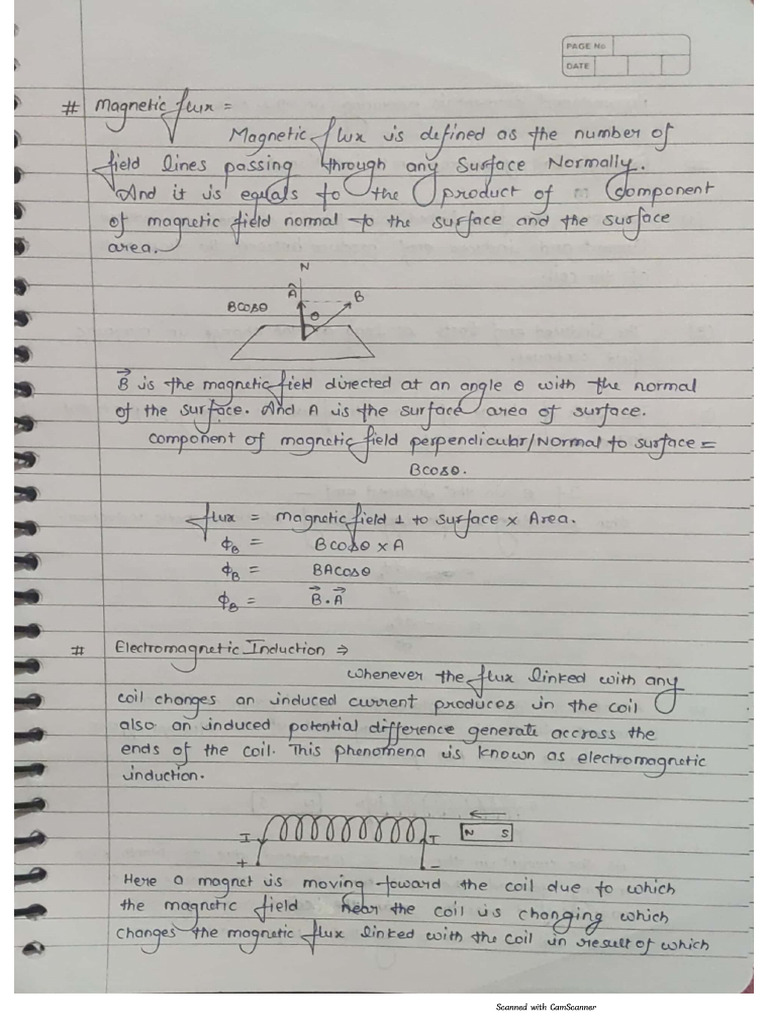 PAGE No
DATE
# Magnetic flux =
Magnetic flux is defined as the number of
field lines passing through any Surface Normally.
And it is equals to the product of component
of magnetic field normal to the surface and the surface
area.
N
Â
B
Bcosθ
θ
B⃗ is the magnetic field directed at an angle θ with the normal
of the surface. And A is the surface area of surface.
component of magnetic field perpendicular/Normal to surface =
Bcosθ.
flux = magnetic field ⊥ to surface × Area.
ϕB = Bcosθ × A
ϕB = BAcosθ
ϕB = B⃗.A⃗
# Electromagnetic Induction ⇒
whenever the flux linked with any
coil changes an induced current produces in the coil
also an induced potential difference generate accross the
ends of the coil. This phenomena is known as electromagnetic
induction.
I I N S
+ -
Here a magnet is moving toward the coil due to which
the magnetic field near the coil is changing which
changes the magnetic flux linked with the coil in result of which
Scanned with CamScanner